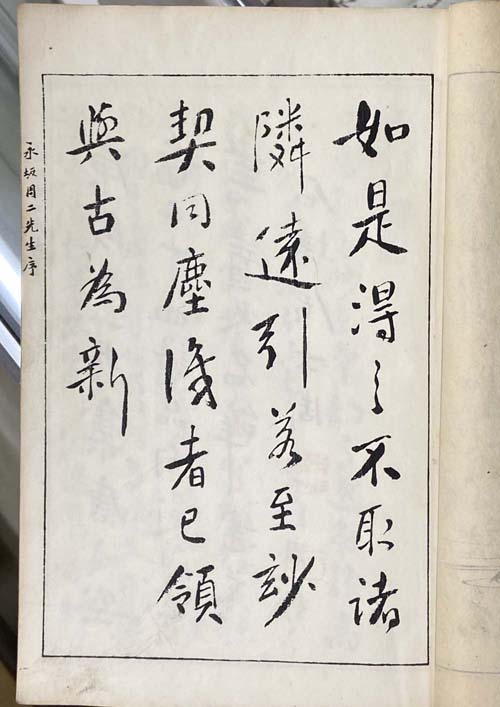 如是得之不取諸
隣遠引若至玅
契同塵識者已領
與古為新
永坂周二先生序